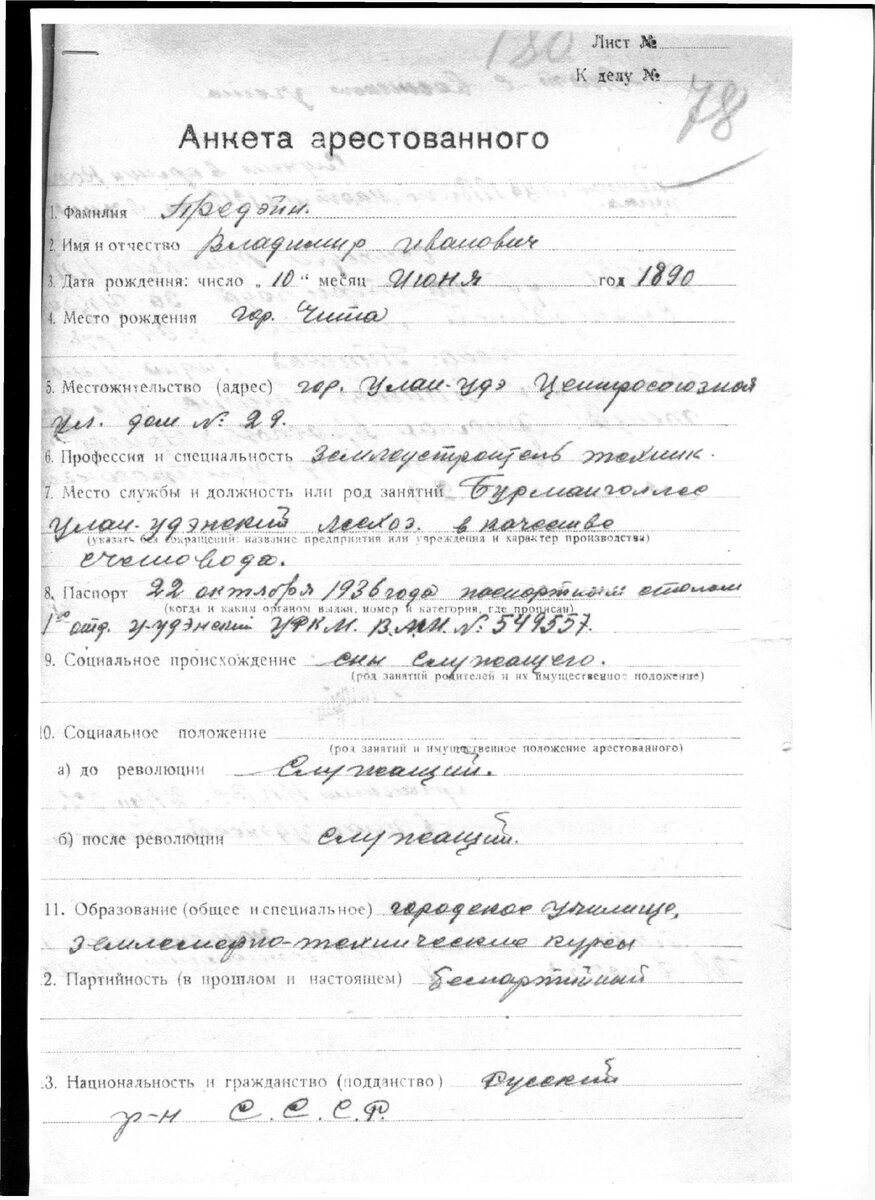 180
Лист №
К делу №
78
Анкета арестованного
1. Фамилия Предэйн.
2. Имя и отчество Владимир Иванович
3. Дата рождения: число „10“ месяц Июня год 1890
4. Место рождения гор. Чита
5. Местожительство (адрес) гор. Улан-Удэ Центросоюзной
ул. дом №: 29.
6. Профессия и специальность Землеустроитель техник.
7. Место службы и должность или род занятий Бурмонголлес
Улан-Удэнский Лесхоз. в качестве
(указать без сокращений: название предприятия или учреждения и характер производства)
счетовода.
8. Паспорт 22 октября 1936 года паспортным столом
(когда и каким органом выдан, номер и категория, где прописан)
1го отд. У-Удэнский УРКМ. №: 549557.
9. Социальное происхождение сын служащего.
(род занятий родителей и их имущественное положение)
10. Социальное положение
(род занятий и имущественное положение арестованного)
а) до революции Служащий.
б) после революции служащий.
11. Образование (общее и специальное) городское училище,
землемерно-технические курсы
2. Партийность (в прошлом и настоящем) беспартийный
3. Национальность и гражданство (подданство) русский
гр-н С.С.С.Р.